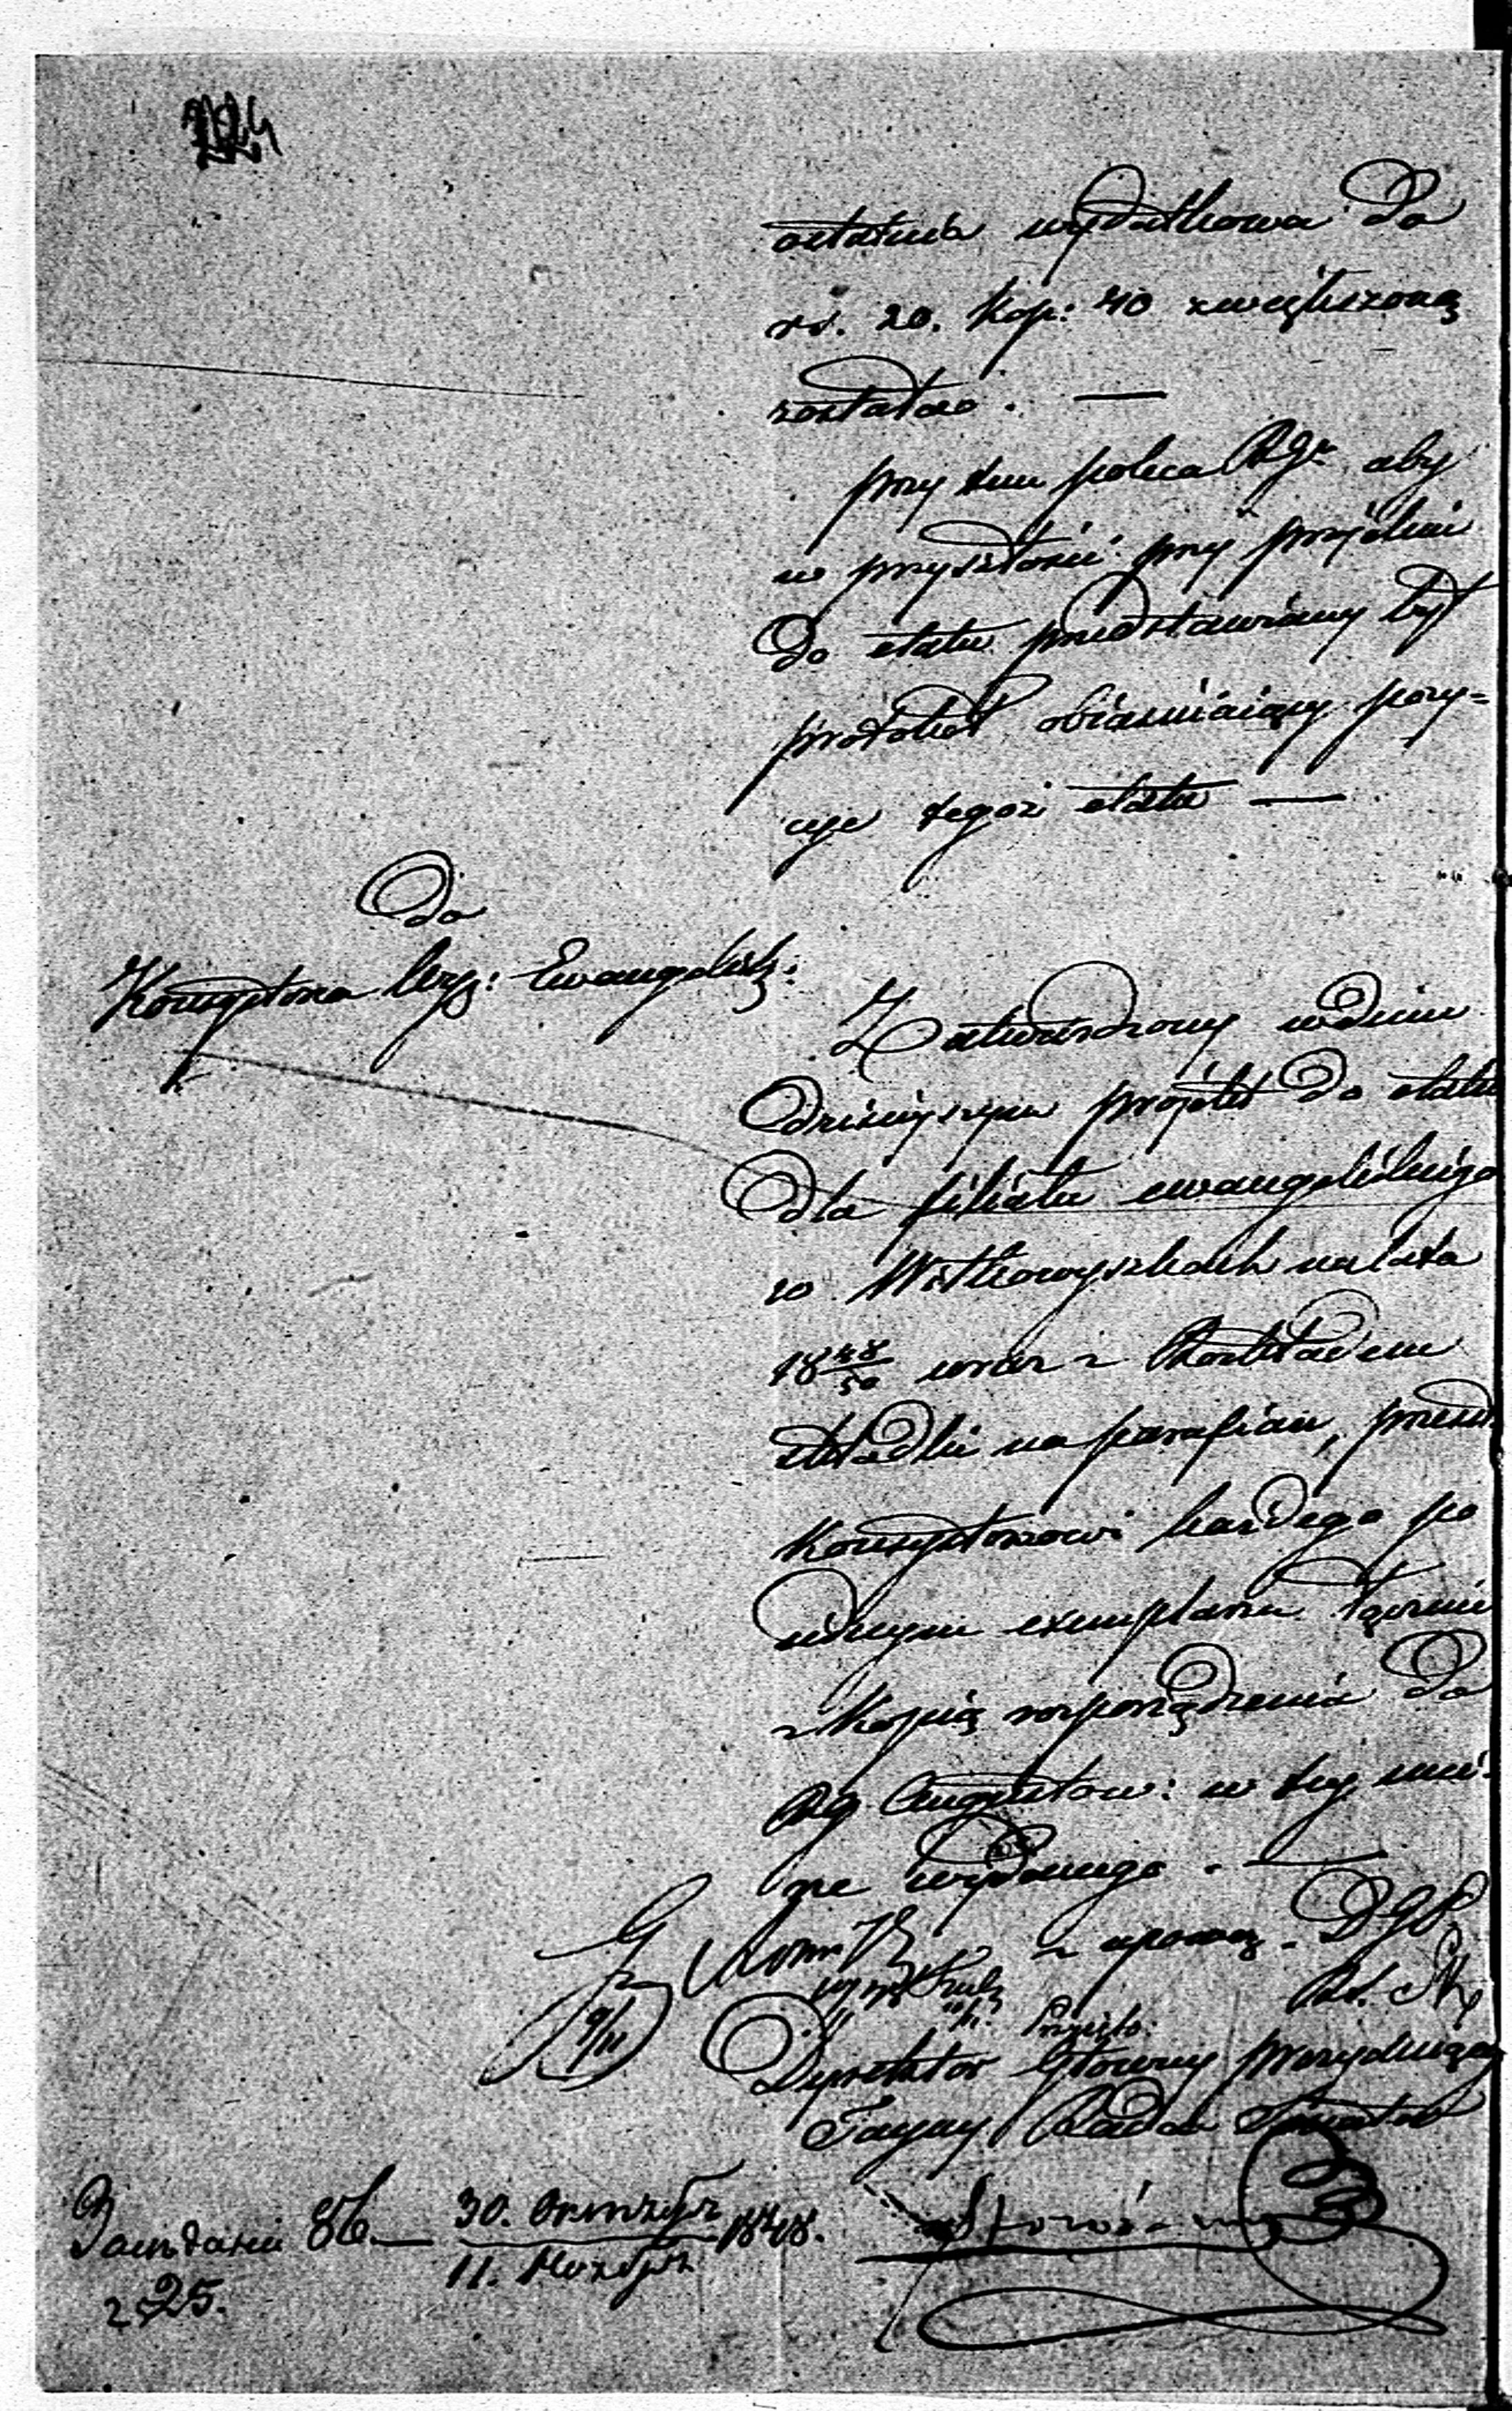 224
ostatnia wydatkowa do
rs. 20. kop: 40 zwiększoną
została. —
przy tem poleca Rgr aby
w przyszłości przy projekcie
do etatu przedstawiany był
protokół obiaśniaiący pozy=
cye tegoż etatu —
Do
Konsystorza Wyz: Ewangelick:
Zatwierdzony w dniu
dzisieyszym projekt do etatu
dla filiału ewangelickiego
w Wiłkowyszkach na lata
18 48/50 wraz z Rozkładem
składki na parafian, przesyła
Konsystorzowi każdego po
iednym exemplarzu łącznie
z kopią rozporządzenia do
Rg Augustow: w tey mie-
rze wydanego. —
z upoważ. DGP
9/11
Dyrektor Główny prezyduiący
Tayny Radca Senator
30. Октября
11. Ноября 1848.
25.